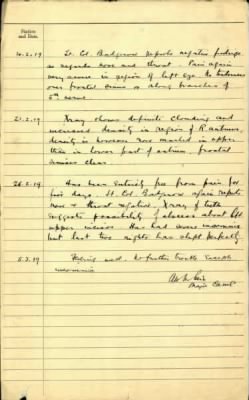 Station
and Date.
14.2.19 Lt. Col. Badgerow reports negative findings
as regards nose and throat. Pain again
very severe in region of left eye. No tenderness
over frontal sinus or along branches of
5th nerve
21.2.19 Xray shows definite clouding and
increased density in region of R. antrum
density is however more marked in upper
than in lower part of antrum. frontal
sinuses clear.
28.2.19 Has been entirely free from pain for
four days. Lt Col. Badgerow again reports
nose & throat negative. Xray of teeth
suggests possibility of abscess about left
upper incisor. Has had severe insomnia
but last two nights has slept perfectly
5.3.19 Feeling well. No further trouble except
insomnia
Major CAMC